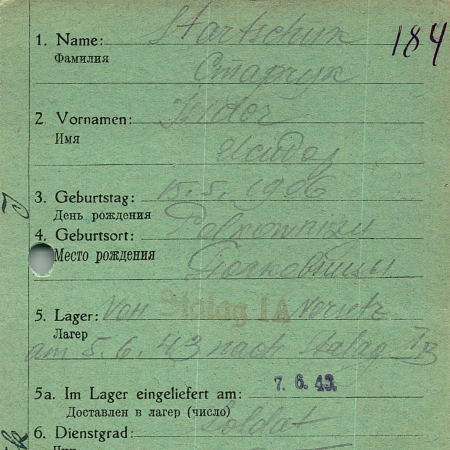 1. Name: Startschuk
184
Фамилия
Старчук
2. Vornamen: Isidor
Имя
Исидор
3. Geburtstag: 15.5.1906
День рождения
4. Geburtsort:
Место рождения
5. Lager: Von Stalag IA versetz
Лагер
am 5.6.43 nach stalag IB
5a. Im Lager eingeliefert am: 7.6.43.
Доставлен в лагер (число)
6. Dienstgrad: Soldat